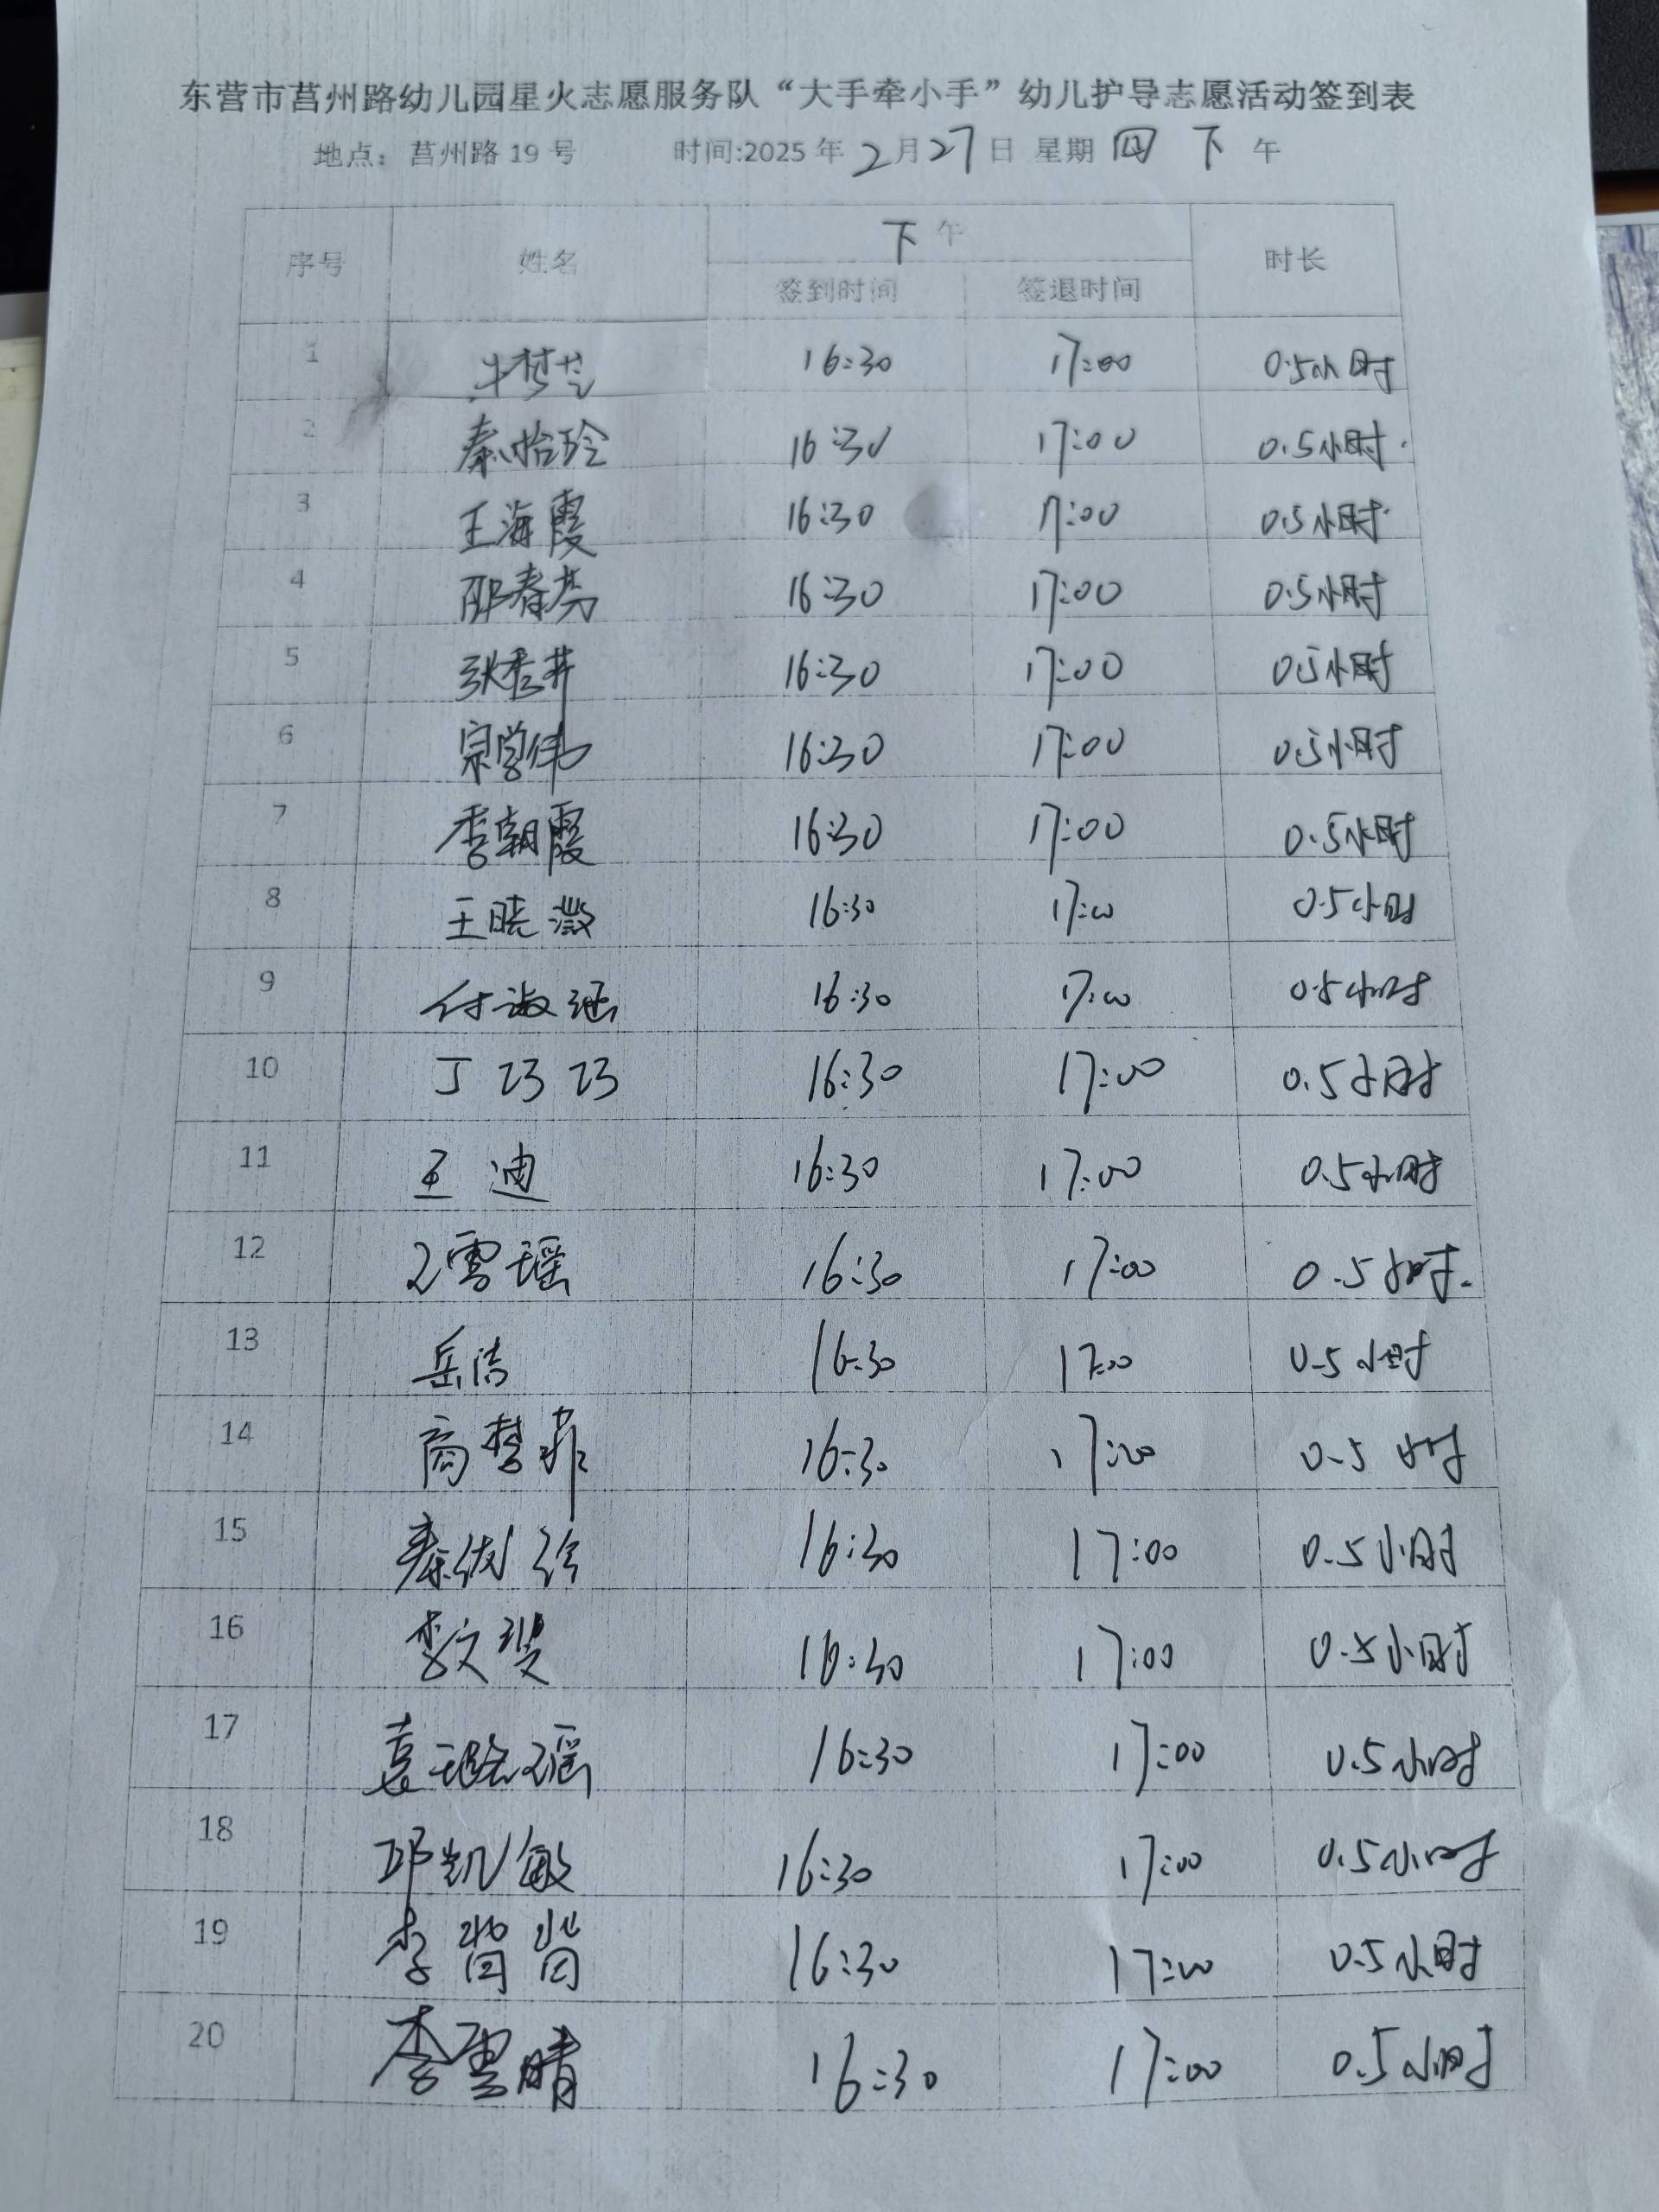 东营市莒州路幼儿园星火志愿服务队“大手牵小手”幼儿护导志愿活动签到表
地点：莒州路 19 号 时间:2025 年 2 月 27 日 星期 四 下 午
序号 姓名 下 午 时长
签到时间 签退时间
1 16:30 17:00 0.5小时
2 秦怡玲 16:30 17:00 0.5小时.
3 王海霞 16:30 17:00 0.5小时.
4 邵春芳 16:30 17:00 0.5小时
5 张秀井 16:30 17:00 0.5小时
6 宗学伟 16:30 17:00 0.5小时
7 李朝霞 16:30 17:00 0.5小时
8 王晓激 16:30 17:00 0.5小时
9 付淑涵 16:30 17:00 0.5小时
10 丁巧巧 16:30 17:00 0.5小时
11 王迪 16:30 17:00 0.5小时
12 雪瑶 16:30 17:00 0.5小时.
13 岳洁 16:30 17:00 0.5小时
14 商梦菲 16:30 17:00 0.5小时
15 秦 16:30 17:00 0.5小时
16 李文斐 16:30 17:00 0.5小时
17 袁璐瑶 16:30 17:00 0.5小时
18 邱凯敏 16:30 17:00 0.5小时
19 李 16:30 17:00 0.5小时
20 李雪晴 16:30 17:00 0.5小时